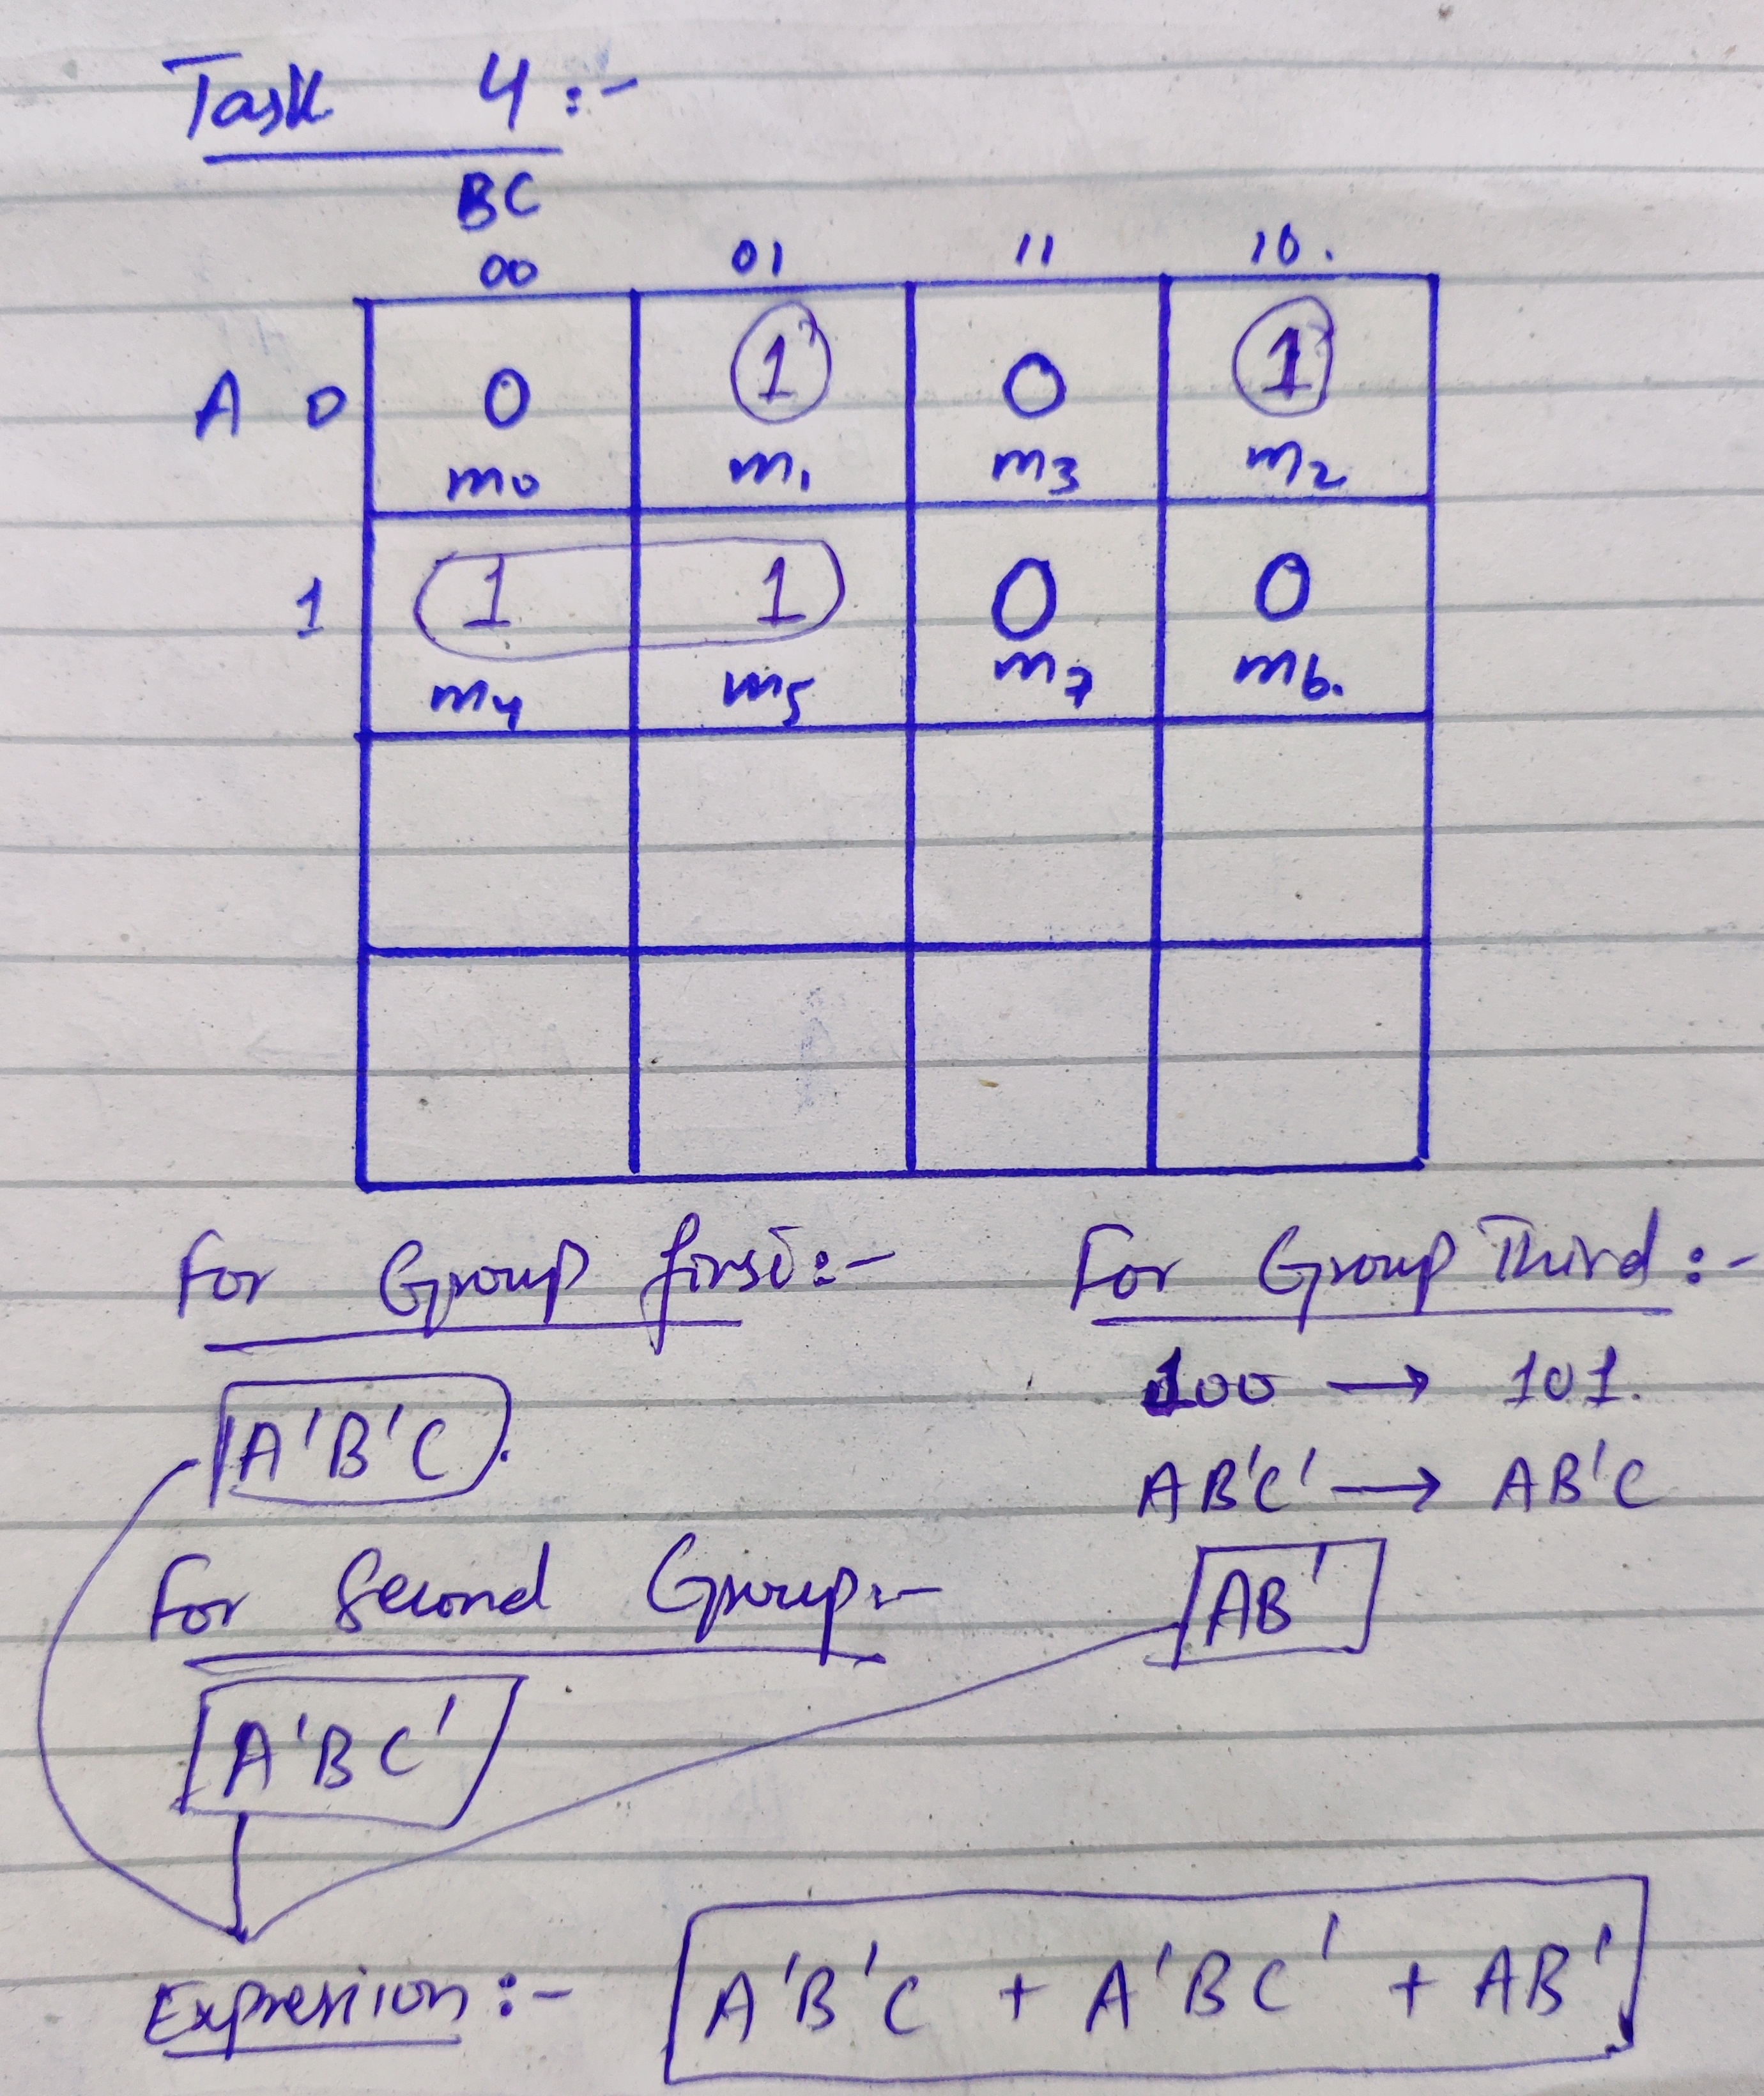 Task 4:-
BC
00 01 11 10.
A 0 0 1 0 1
m0 m1 m3 m2
1 1 1 0 0
m4 m5 m7 m6.
For Group first:-
A'B'C.
For Second Group:-
A'BC'
For Group Third:-
100 → 101.
AB'C' → AB'C
AB'
Expression:- A'B'C + A'BC' + AB'